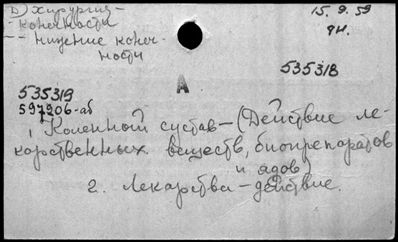 D) хирургия -
- конечности
-- нижние конеч-
ности
15.9.59
ян.
535318
А
535319
597206-аб
1. Коленный сустав-(Действие ле-
карственных веществ, биопрепаратов
и ядов)
2. Лекарства - действие.